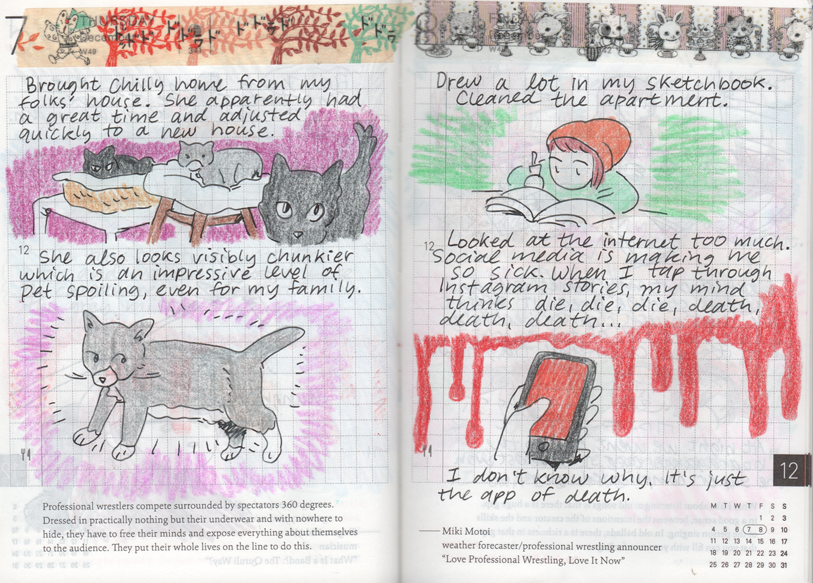 7
THURSDAY
W49
Brought Chilly home from my
folks' house. She apparently had
a great time and adjusted
quickly to a new house.
12
She also looks visibly chunkier
which is an impressive level of
pet spoiling, even for my family.
Professional wrestlers compete surrounded by spectators 360 degrees.
Dressed in practically nothing but their underwear and with nowhere to
hide, they have to free their minds and expose everything about themselves
to the audience. They put their whole lives on the line to do this.
8
FRIDAY
Drew a lot in my sketchbook.
Cleaned the apartment.
12
Looked at the internet too much.
Social media is making me
so sick. When I tap through
Instagram stories, my mind
thinks die, die, die, death,
death, death...
I don't know why. It's just
the app of death.
12
Miki Motoi
weather forecaster/professional wrestling announcer
"Love Professional Wrestling, Love It Now"
M T W T F S S
1 2 3
4 5 6 7 8 9 10
11 12 13 14 15 16 17
18 19 20 21 22 23 24
25 26 27 28 29 30 31